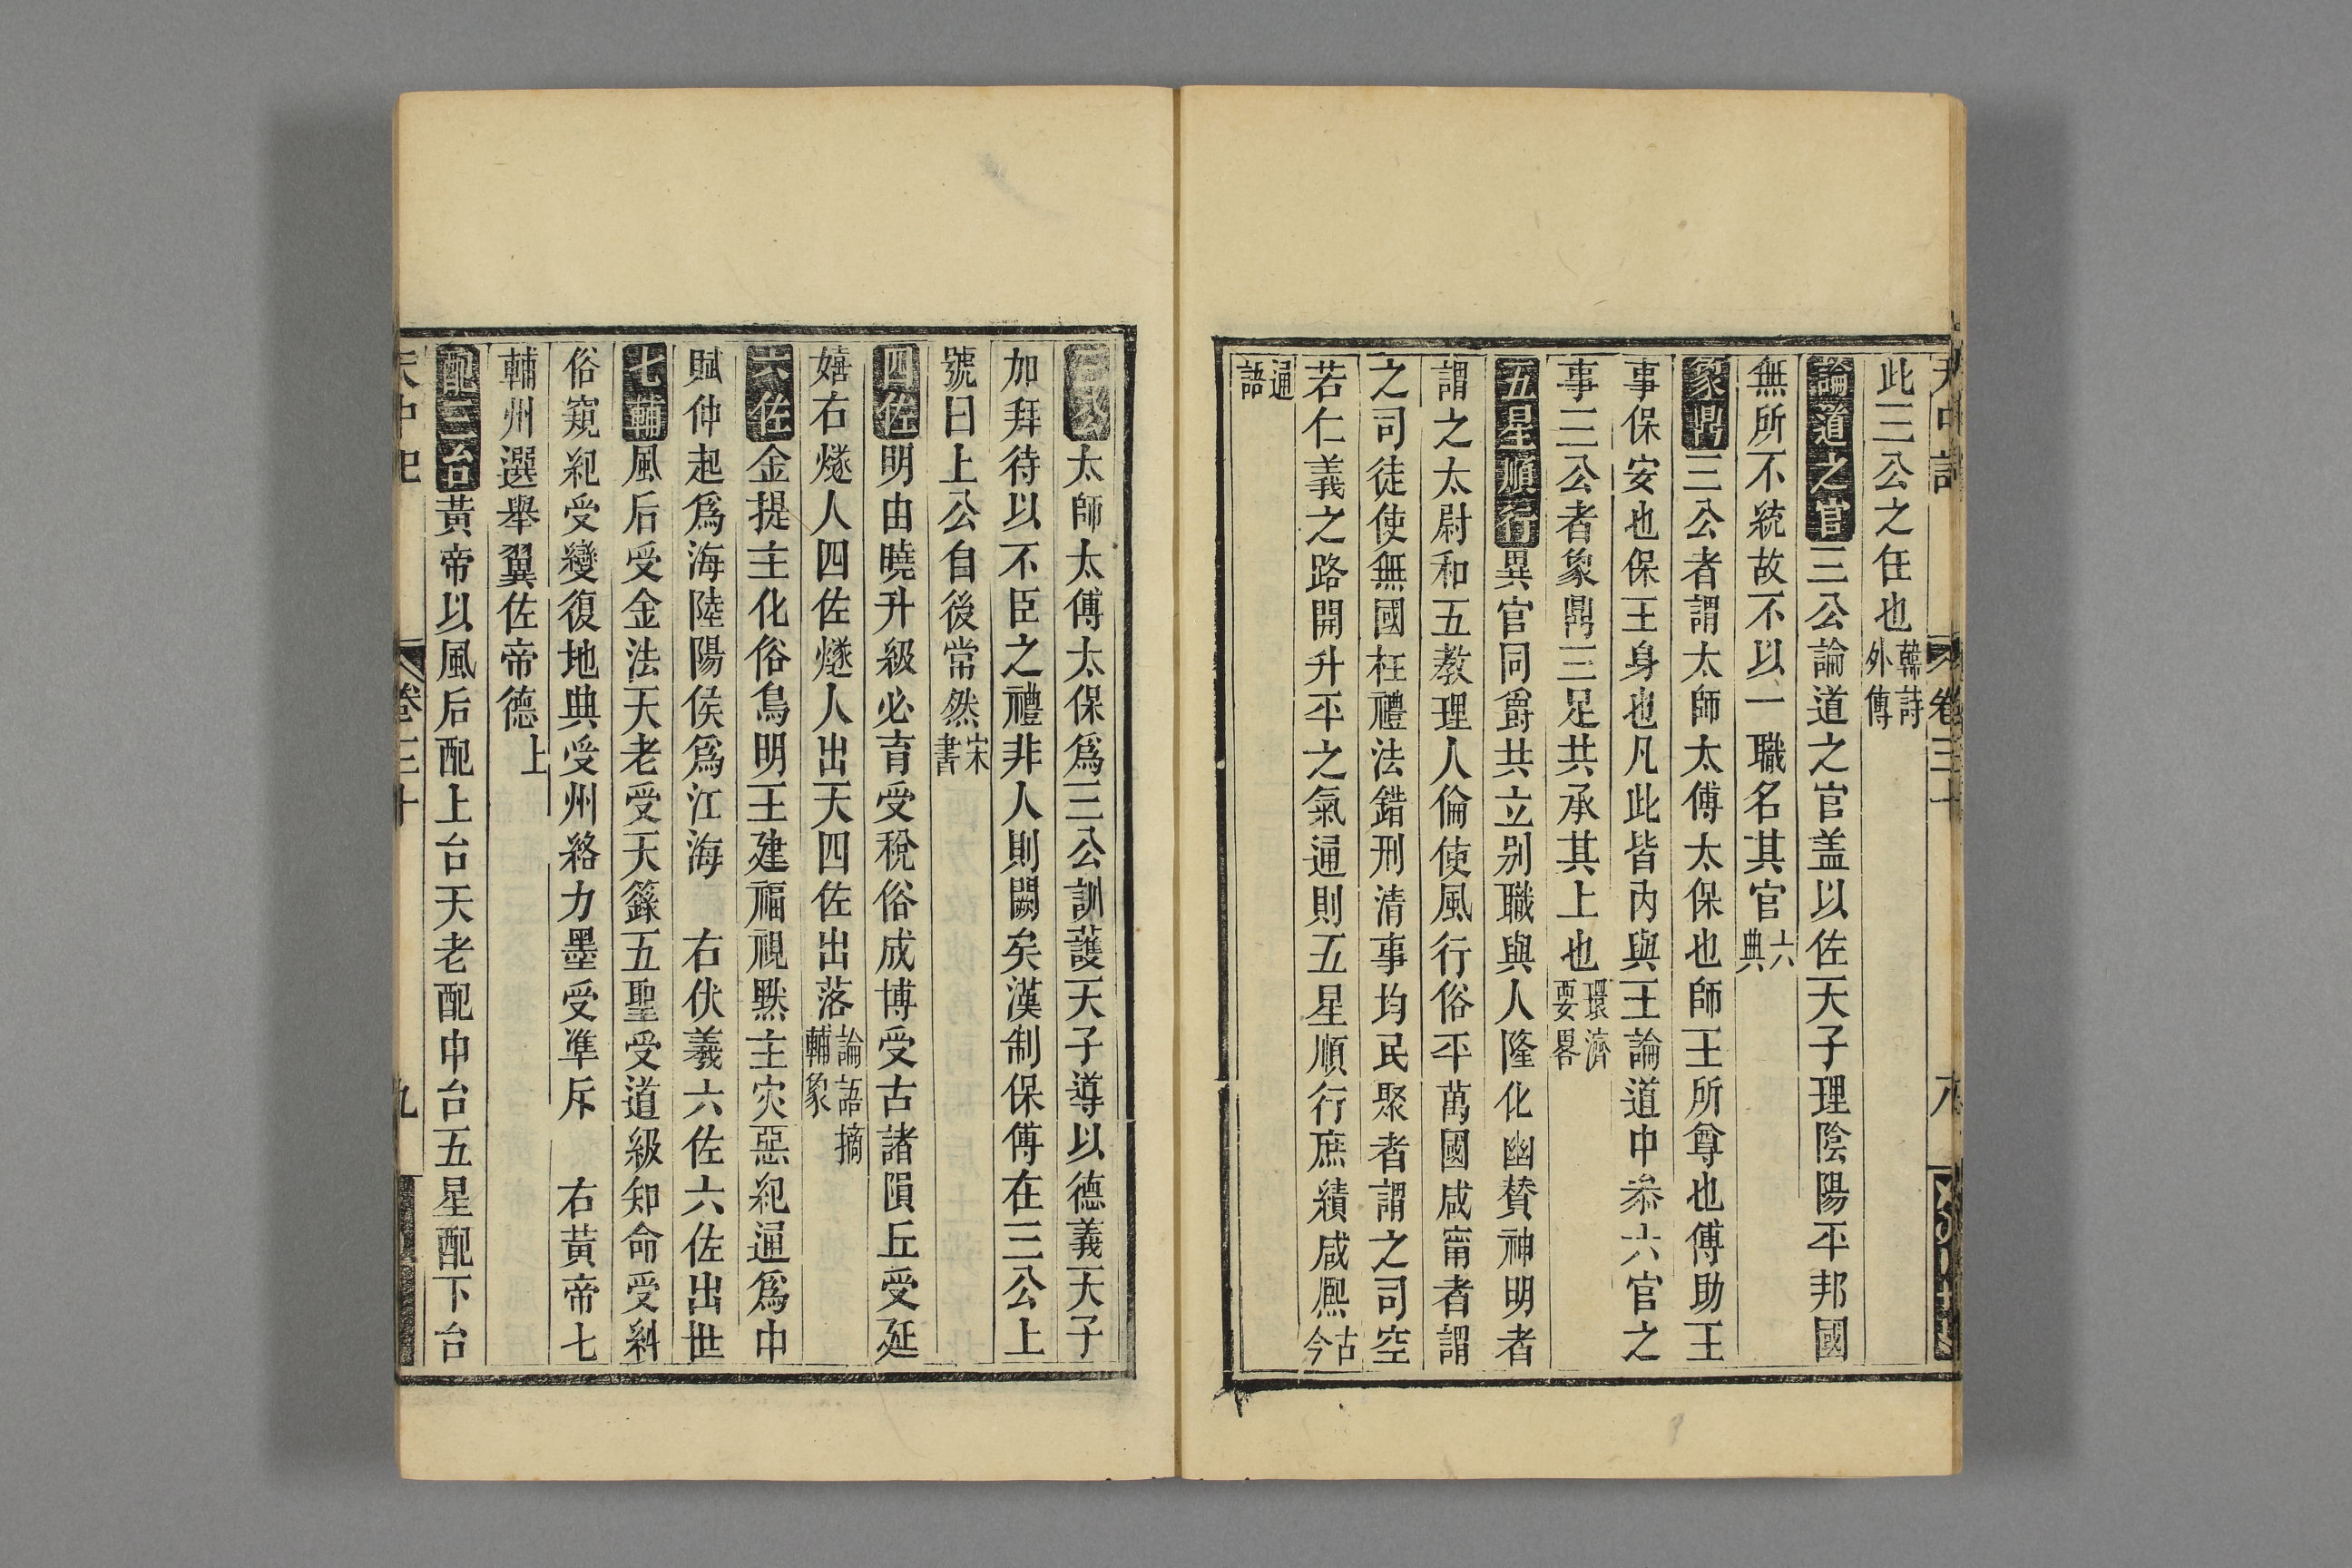 此三公之任也韓詩外傳
論道之官三公論道之官盖以佐天子理陰陽平邦國
無所不統故不以一職名其官六典
象鼎三公者謂太師太傅太保也師王所尊也傅助王
事保安也保王身也凡此皆內與王論道中叅六官之
事三公者象鼎三足共承其上也環濟要畧
五星順行異官同爵共立别職與人隆化幽賛神明者
謂之太尉和五教理人倫使風行俗平萬國咸甯者謂
之司徒使無國枉禮法錯刑清事均民聚者謂之司空
若仁義之路開升平之氣通則五星順行庶績咸熈古今
通語
太師太傅太保爲三公訓護天子導以德義天子
加拜待以不臣之禮非人則闕矣漢制保傅在三公上
號曰上公自後常然宋書
四佐明由曉升級必育受稅俗成博受古諸隕丘受延
嬉右燧人四佐燧人出天四佐出落論語摘輔象
六佐金提主化俗鳥明主建福視黙主灾惡紀通爲中
賦仲起爲海陸陽侯爲江海 右伏羲六佐六佐出世
七輔風后受金法天老受天籙五聖受道級知命受糾
俗窺紀受變復地典受州絡力墨受凖斥 右黃帝七
輔州選舉翼佐帝德上
配三台黃帝以風后配上台天老配中台五星配下台
卷三十
九